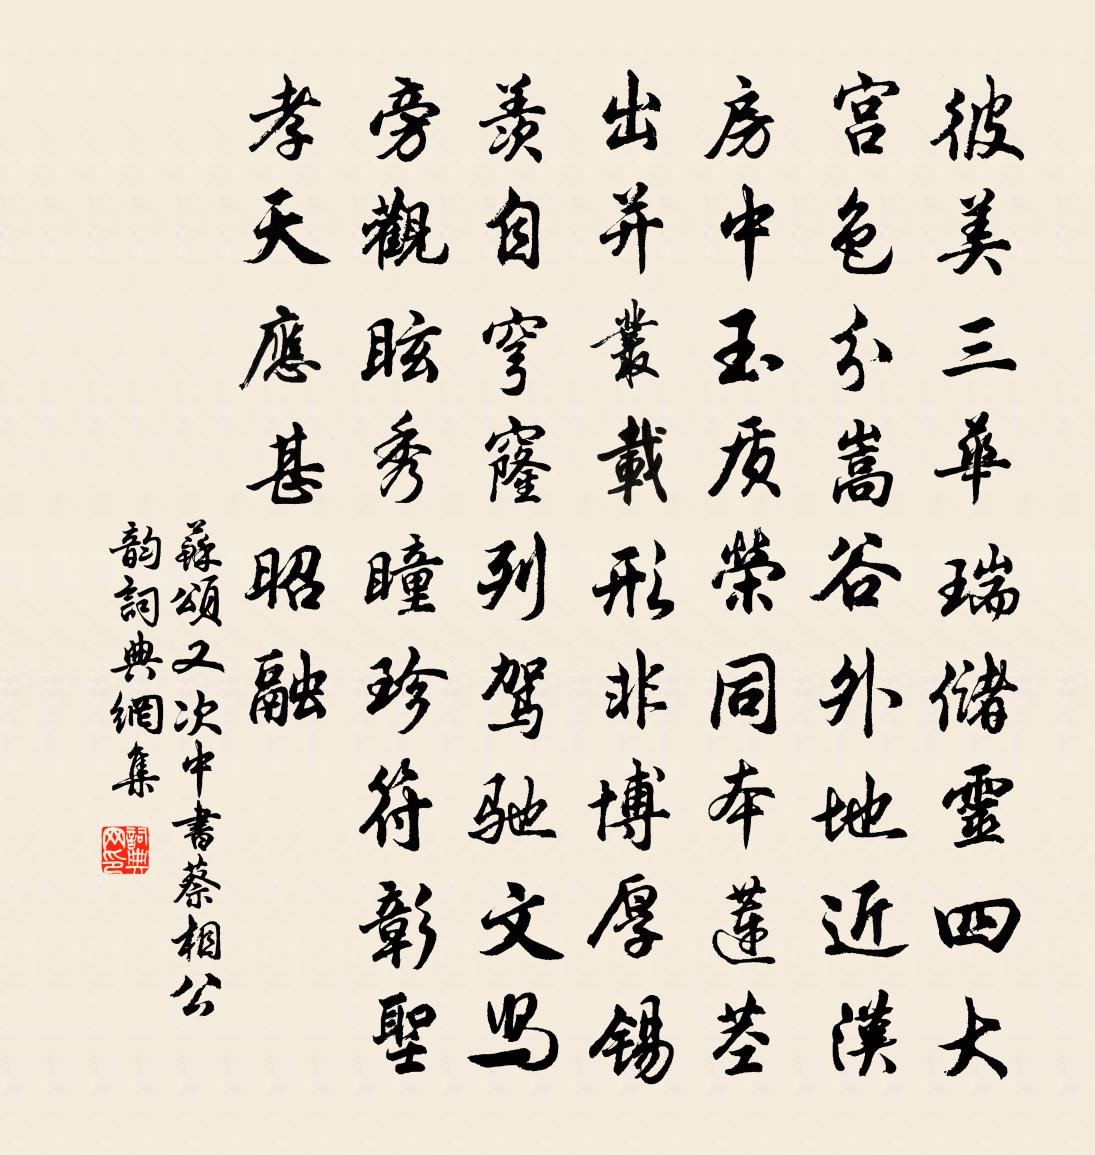 彼美三華瑞儲靈四大
宫色分嵩谷外地近漢
房中玉质榮同本蓮莖
出并叢載形非博厚锡
羡自穹窿列驾馳文鸟
旁觀眩秀瞳珍符彰聖
孝天應甚昭融
蘇頌又次中書蔡相公
韵詞典網集
詞典网印